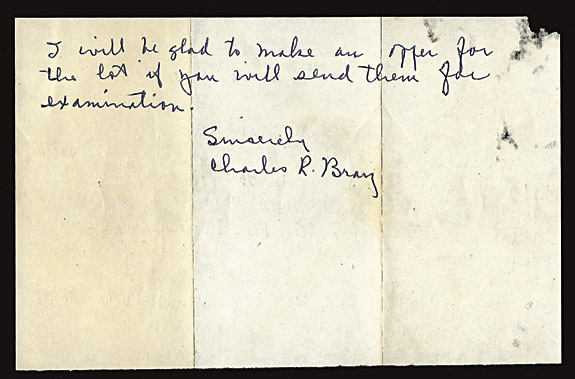 I will be glad to make an offer for
the lot if you will send them for
examination.
Sincerely
Charles R. Bray